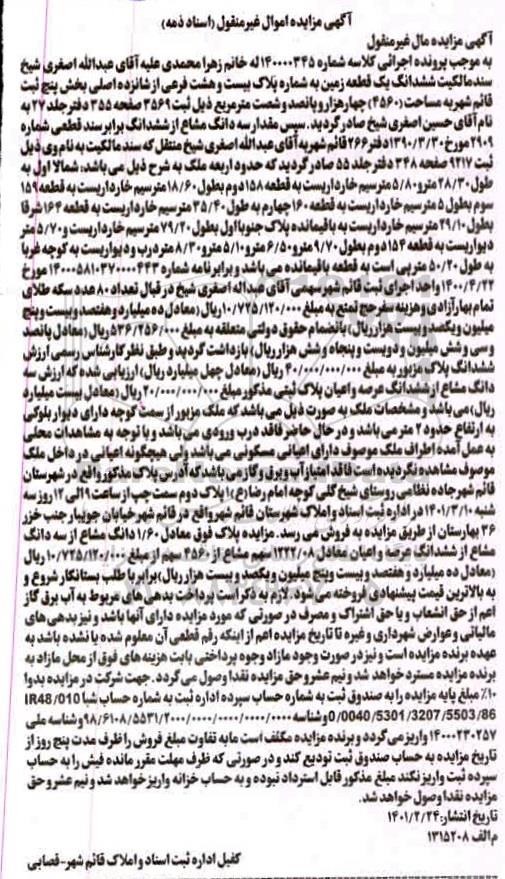 آگهی مزایده اموال غیرمنقول (اسناد ذمه)
آگهی مزایده مال غیرمنقول
به موجب پرونده اجرائی کلاسه شماره ۱۴۰۰۰۰۳۴۵ له خانم زهرا محمدی علیه آقای عبدالله اصغری شیخ
سند مالکیت ششدانگ یک قطعه زمین به شماره پلاک بیست و هشت فرعی از شانزده اصلی بخش پنج ثبت
قائم شهر به مساحت (۴۵۶۰) چهارهزار و پانصد و شصت مترمربع ذیل ثبت ۳۵۶۹ صفحه ۳۵۵ دفتر جلد ۲۷ به
نام آقای حسین اصغری شیخ صادر گردید. سپس مقدار سه دانگ مشاع از ششدانگ برابر سند قطعی شماره
۲۹۰۹ مورخ ۱۳۹۰/۳/۳۰ دفتر ۲۶۶ قائم شهر به آقای عبدالله اصغری شیخ منتقل که سند مالکیت به نام وی ذیل
ثبت ۹۲۱۷ صفحه ۳۴۸ دفتر جلد ۵۵ صادر گردید که حدود اربعه ملک به شرح ذیل می باشد: شمالا اول به
طول ۲۸/۳۰ متر و ۵/۸۰ متر سیم خارداریست به قطعه ۱۵۸ دوم بطول ۱۸/۶۰ متر سیم خارداریست به قطعه ۱۵۹
سوم بطول ۵ متر سیم خارداریست به قطعه ۱۶۰ چهارم به طول ۳۵/۴۰ متر سیم خارداریست به قطعه ۱۶۴ شرقا
بطول ۲۹/۱۰ متر سیم خارداریست به باقیمانده پلاک جنوبا اول بطول ۷۹/۲۰ متر سیم خارداریست و ۵/۷۰ متر
دیواریست به قطعه ۱۵۴ دوم بطول ۹/۷۰ متر و ۶/۵۰ متر و ۵/۱۰ متر و ۸/۳۰ متر درب و دیواریست به کوچه غربا
به طول ۵۰/۲۰ متر پی است به قطعه باقیمانده می باشد و برابر نامه شماره ۱۴۰۰۰۵۸۱۰۳۷۰۰۰۰۴۴۳ مورخ
۱۴۰۰/۴/۲۲ واحد اجرای ثبت قائم شهر سهمی آقای عبداله اصغری شیخ در قبال تعداد ۸۰ عدد سکه طلای
تمام بهار آزادی و هزینه سفر حج تمتع به مبلغ ۱۰/۷۲۵/۱۲۰/۰۰۰ ریال (معادل ده میلیارد و هفتصد و بیست و پنج
میلیون و یکصد و بیست هزار ریال) بانضمام حقوق دولتی متعلقه به مبلغ ۵۳۶/۲۵۶/۰۰۰ ریال (معادل پانصد
و سی و شش میلیون و دویست و پنجاه و شش هزار ریال) بازداشت گردید و طبق نظر کارشناس رسمی ارزش
ششدانگ پلاک مزبور به مبلغ ۴۰/۰۰۰/۰۰۰/۰۰۰ ریال (معادل چهل میلیارد ریال) ارزیابی شده که ارزش سه
دانگ مشاع از ششدانگ عرصه و اعیان پلاک ثبتی مذکور مبلغ ۲۰/۰۰۰/۰۰۰/۰۰۰ ریال (معادل بیست میلیارد
ریال) می باشد و مشخصات ملک به صورت ذیل می باشد که ملک مزبور از سمت کوچه دارای دیوار بلوکی
به ارتفاع حدود ۲ متر می باشد و در حال حاضر فاقد درب ورودی می باشد و با توجه به مشاهدات محلی
به عمل آمده اطراف ملک موصوف دارای اعیانی مسکونی می باشد ولی هیچگونه اعیانی در داخل ملک
موصوف مشاهده نگردیده است فاقد امتیاز آب و برق و گاز می باشد که آدرس پلاک مذکور واقع در شهرستان
قائم شهر جاده نظامی روستای شیخ کلی کوچه امام رضا(ع) ۱ پلاک دوم سمت چپ از ساعت ۹ الی ۱۲ روز سه
شنبه ۱۴۰۱/۳/۱۰ در اداره ثبت اسناد و املاک شهرستان قائم شهر واقع در قائم شهر خیابان جویبار جنب خزر
۳۶ بهارستان از طریق مزایده به فروش می رسد. مزایده پلاک فوق معادل ۱/۶۰ دانگ مشاع از سه دانگ
مشاع از ششدانگ عرصه و اعیان معادل ۱۲۲۲/۰۸ سهم مشاع از ۴۵۶۰ سهم از مبلغ ۱۰/۷۲۵/۱۲۰/۰۰۰ ریال
(معادل ده میلیارد و هفتصد و بیست و پنج میلیون و یکصد و بیست هزار ریال) برابر با طلب بستانکار شروع و
به بالاترین قیمت پیشنهادی فروخته می شود. لازم به ذکر است پرداخت بدهی های مربوط به آب برق گاز
اعم از حق انشعاب و یا حق اشتراک و مصرف در صورتی که مورد مزایده دارای آنها باشد و نیز بدهی های
مالیاتی و عوارض شهرداری و غیره تا تاریخ مزایده اعم از اینکه رقم قطعی آن معلوم شده یا نشده باشد به
عهده برنده مزایده است و نیز در صورت وجود مازاد وجوه پرداختی بابت هزینه های فوق از محل مازاد به
برنده مزایده مسترد خواهد شد و نیم عشر و حق مزایده نقدا وصول می گردد. جهت شرکت در مزایده بدوا
۱۰٪ مبلغ پایه مزایده را به صندوق ثبت به شماره حساب سپرده اداره ثبت به شماره حساب شبا IR48/010
0/0040/5301/3207/5503/86 و شناسه ۹۸/۶۱۰۸/۵۵۳۱/۲۰۰۰/۰۰۰۰/۰۰۰۰/۰۰۰۰ و شناسه ملی
۱۴۰۰۰۲۳۰۲۵۷ واریز می گردد و برنده مزایده مکلف است مابه تفاوت مبلغ فروش را ظرف مدت پنج روز از
تاریخ مزایده به حساب صندوق ثبت تودیع کند و در صورتی که ظرف مهلت مقرر مانده فیش را به حساب
سپرده ثبت واریز نکند مبلغ مذکور قابل استرداد نبوده و به حساب خزانه واریز خواهد شد و نیم عشر و حق
مزایده نقدا وصول خواهد شد.
تاریخ انتشار: ۱۴۰۱/۲/۲۴
م الف ۱۳۱۵۲۰۸
کفیل اداره ثبت اسناد و املاک قائم شهر- قصابی